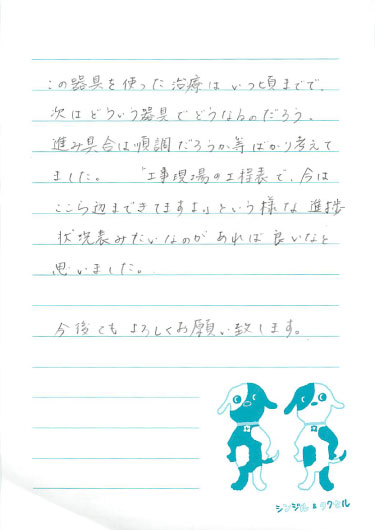 この器具を使った治療はいつ頃までで、
次はどういう器具でどうなんのだろう。
進み具合は順調だろうか等ばかり考えて
ました。「工事現場の工程表で、今は
ここら辺まできてますよ。」という様な進捗
状況表みたいなのがあれば良いなと
思いました。
今後ともよろしくお願い致します。
シンジル&ワクセル